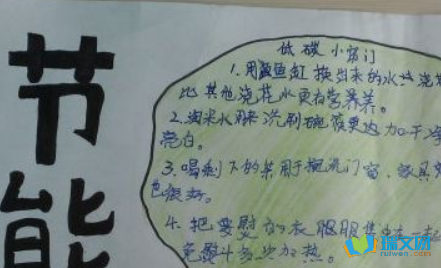 节能
低碳小窍门
1.用鱼缸换出来的水浇
比其他浇花水更有营养。
2.淘米水用来洗刷碗筷更加干净
亮白。
3.喝剩下的茶用于擦洗门窗、家具
也很好。
4.把要熨的衣服集中在一起
免熨斗多次加热。
瑞文网
ruiwen.com